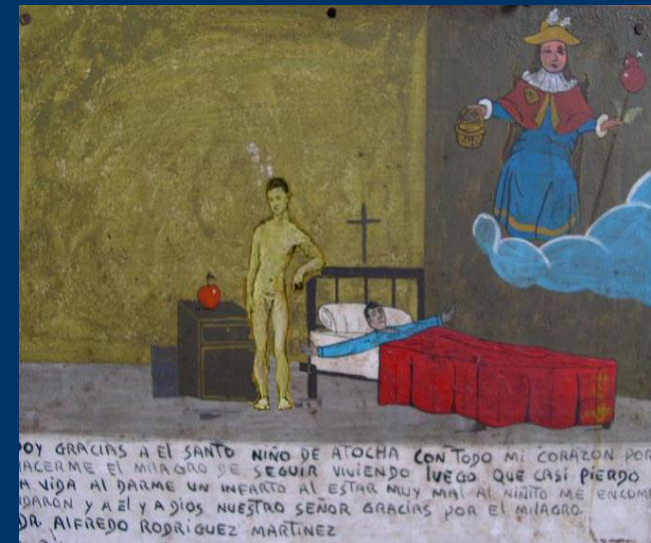 DOY GRACIAS A EL SANTO NIÑO DE ATOCHA CON TODO MI CORAZON POR
HACERME EL MILAGRO DE SEGUIR VIVIENDO LUEGO QUE CASI PIERDO
LA VIDA AL DARME UN INFARTO AL ESTAR MUY MAL AL NIÑITO ME ENCOM
NDARON Y A EL Y A DIOS NUESTRO SEÑOR GRACIAS POR EL MILAGRO.
DR. ALFREDO RODRIGUEZ MARTINEZ